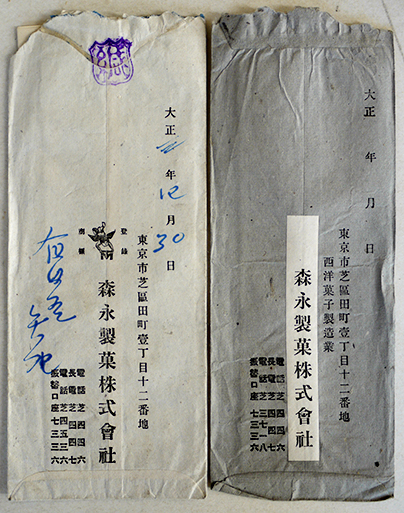 緘
大正二年12月30日
東京市芝區田町壹丁目十二番地
登錄
商標
森永製菓株式會社
電話芝四四六
長電芝四四七
電話芝四五三六
振替口座七三三六
大正 年 月 日
東京市芝區田町壹丁目十二番地
西洋菓子製造業
森永製菓株式會社
電話芝四四六
長電芝四四七
電話芝三七一八
振替口座七三三六